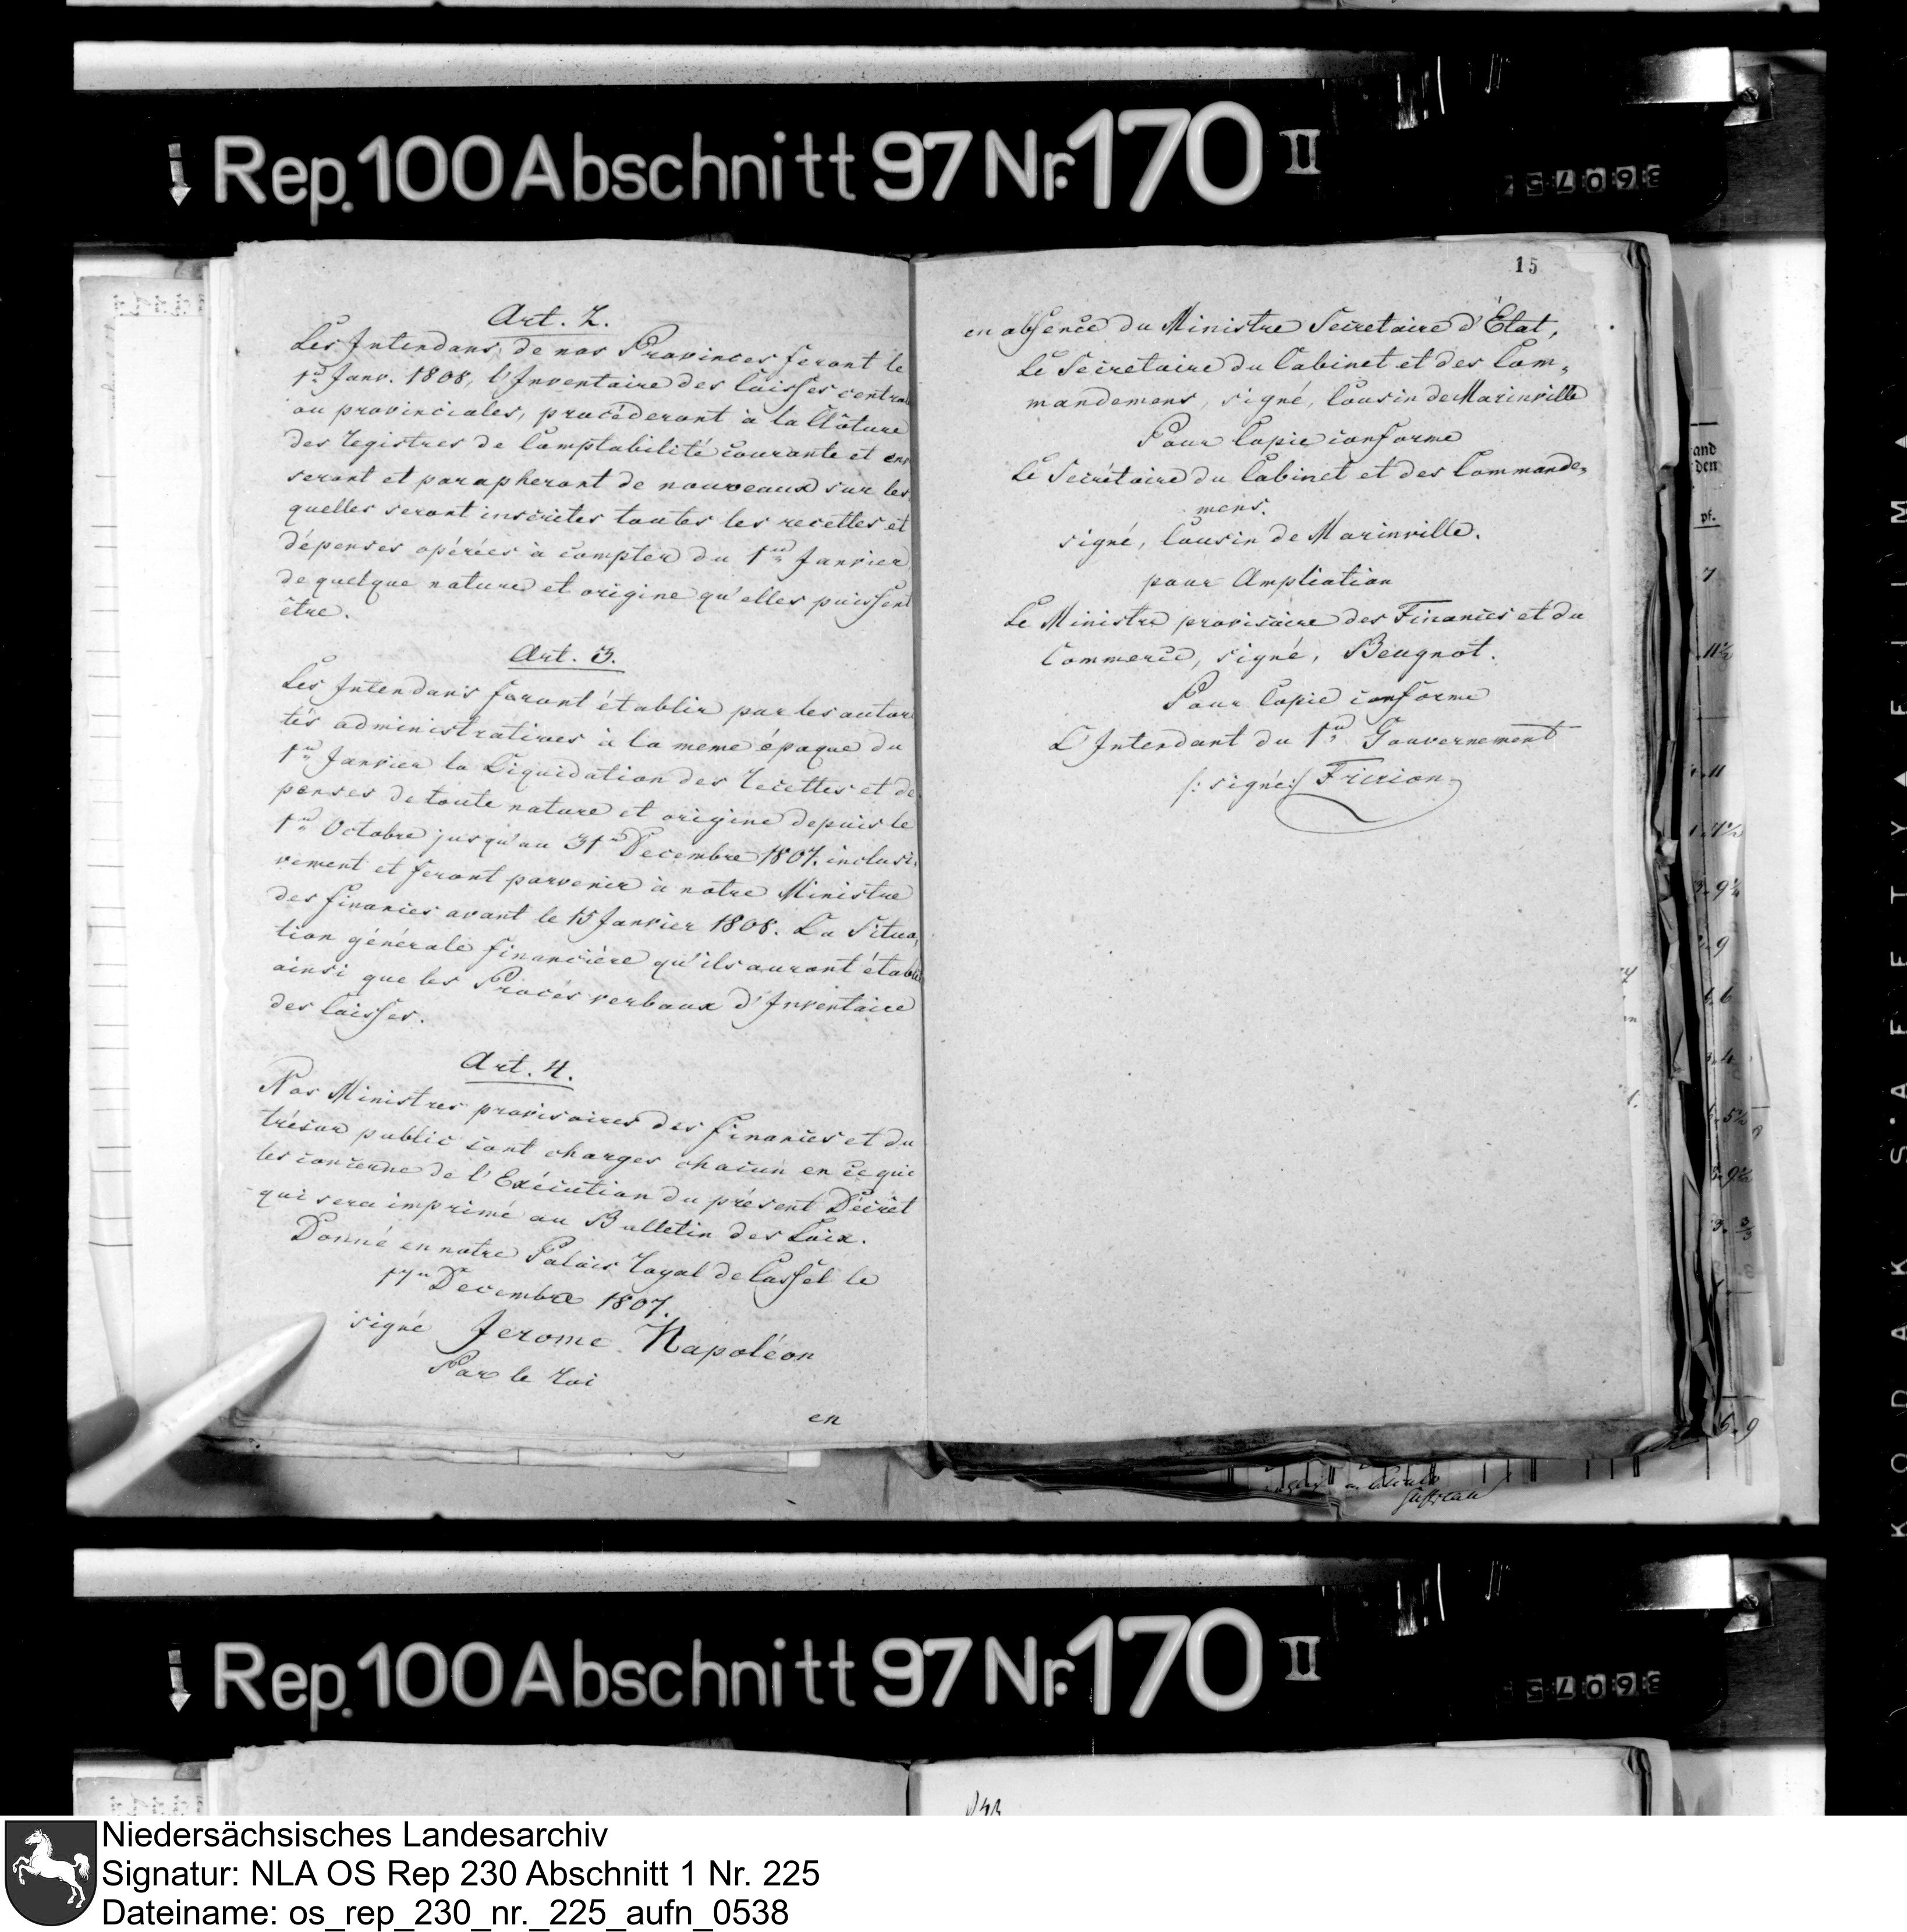 Rep. 100 Abschnitt 97 Nr. 170 II
Art. 2.
Les Intendans de nos Provinces feront le
1er Janv. 1808, l'Inventaire des Caisses central
ou provinciales, procéderont à la Clôture
des Registres de Comptabilité courante et en
seront et parapheront de nouveaux sur les
quelles seront inscrites toutes les recettes et
dépenses opérées à compter du 1er Janvier
de quelque nature et origine qu'elles puissent
être.
Art. 3.
Les Intendans feront établir par les autori
tés administratives à la meme époque du
1er Janvier la Liquidation des Recettes et dé
penses de toute nature et origine depuis le
1er Octobre jusqu'au 31 Decembre 1807. inclusi,
vement et feront parvenir à notre Ministre
des finances avant le 15 Janvier 1808. La Situa,
tion générale financière qu'ils auront établie
ainsi que les Procès verbaux d'Inventaire
des Caisses.
Art. 4.
Nos Ministres provisoires des finances et du
trésor public sont charges chacun en ce qui
les concerne de l'Exécution du présent Décret
qui sera imprimé au Bulletin des Loix.
Donné en notre Palais Royal de Cassel le
17 Decembre 1807.
signé Jerome Napoléon
Par le Roi
en
15
en absence du Ministre Secretaire d'État,
Le Secretaire du Cabinet et des Com,
mandemens, signé, Cousin de Marinville
Pour Copie conforme
Le Secrétaire du Cabinet et des Commande,
mens.
signé, Cousin de Marinville.
pour Ampliation
Le Ministre provisoire des Finances et du
Commerce, signé, Beugnot.
Pour Copie conforme
L'Intendant du 1er Gouvernement
/: signé :/ Fririon
and
den
pf.
7
11½
9
KODAK SAFETY FILM
Rep. 100 Abschnitt 97 Nr. 170 II
Niedersächsisches Landesarchiv
Signatur: NLA OS Rep 230 Abschnitt 1 Nr. 225
Dateiname: os_rep_230_nr._225_aufn_0538